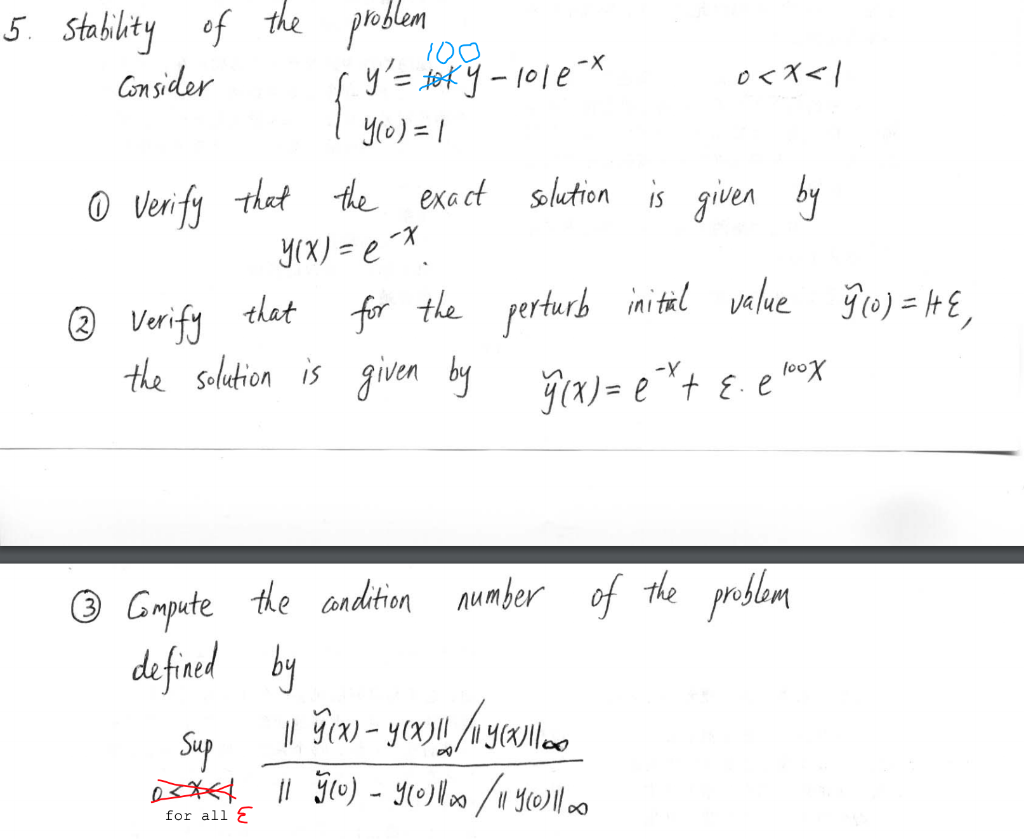 5. Stability of the problem
100
Consider { y' = y - 101e^{-x} 0<x<1
y(0) = 1
① Verify that the exact solution is given by
y(x) = e^{-x}.
② Verify that for the perturb initial value ỹ(0) = 1+ε,
the solution is given by ỹ(x) = e^{-x} + ε·e^{100x}
③ Compute the condition number of the problem
defined by
Sup ||ỹ(x) - y(x)||∞ / ||y(x)||∞
0<x<1 ||ỹ(0) - y(0)||∞ / ||y(0)||∞
for all ε